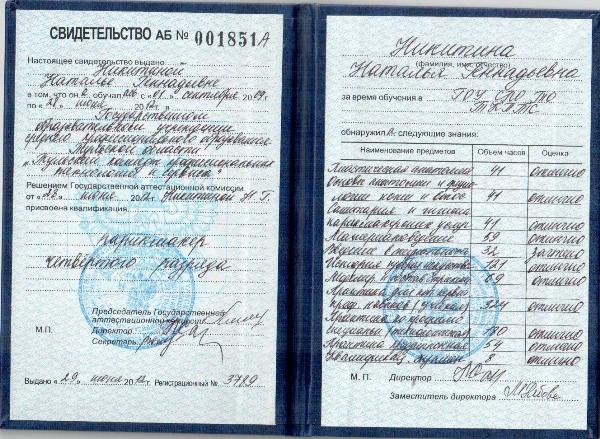 СВИДЕТЕЛЬСТВО АБ № 001851А
Настоящее свидетельство выдано
Никитиной
Наталье Геннадьевне
в том, что он а обучалась с «01» сентября 2009
по «29» июня 2012 г. в
Государственном
образовательном учреждении
среднего профессионального образования
Тульской области
«Тульский колледж профессиональных
технологий и сервиса»
Решением Государственной аттестационной комиссии
от июня 2012 Никитиной Н.Г.
присвоена квалификация
парикмахер
четвертого разряда
Председатель Государственной
аттестационной комиссии
Директор
Секретарь
М.П.
Выдано «29» июня 2012 г. Регистрационный № 3789
Никитина
(фамилия, имя, отчество)
Наталья Геннадьевна
за время обучения в ГОУ СПО ТО
обнаружил а следующие знания:
Наименование предметов Объем часов Оценка
Пластическая анатомия 41 отлично
Основы анатомии и физио
логии кожи и волос 41 отлично
Санитария и гигиена
парикмахерских услуг 41 отлично
Материаловедение 59 отлично
Введение в 32 зачтено
История 121 отлично
69 отлично
Практика для пол. первич.
проф. навыков 324 отлично
Практика по профилю
специальн. технологическая 180 отлично
Практика 54 отлично
Квалификац. экзамен 8 отлично
М. П. Директор
Заместитель директора